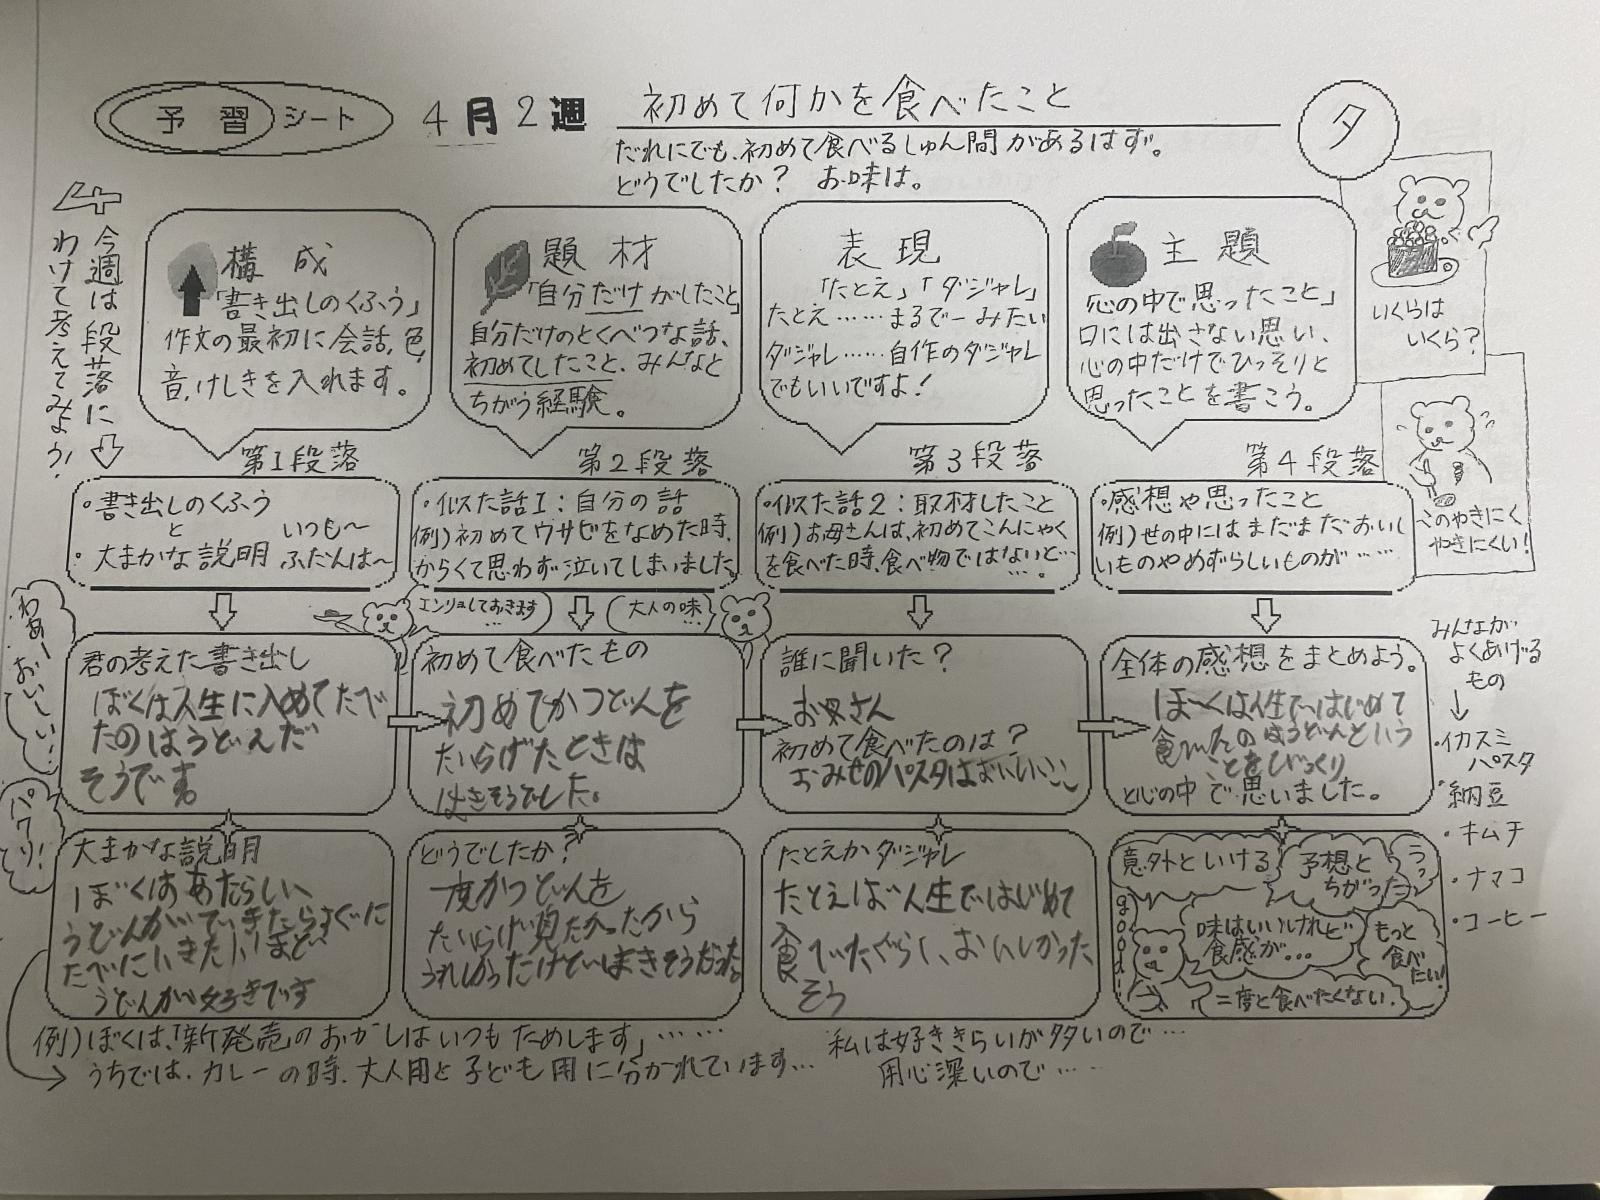 予習シート 4月2週 初めて何かを食べたこと
夕
だれにでも、初めて食べるしゅん間があるはず。
どうでしたか? お味は。
今週は段落に
わけて考えてみよう!
構成
「書き出しのくふう」
作文の最初に会話、色、
音、けしきを入れます。
題材
「自分だけがしたこと」
自分だけのとくべつな話、
初めてしたこと、みんなと
ちがう経験。
表現
「たとえ」「ダジャレ」
たとえ……まるで―みたい
ダジャレ……自作のダジャレ
でもいいですよ!
主題
「心の中で思ったこと」
口には出さない思い、
心の中だけでひっそりと
思ったことを書こう。
いくらは
いくら?
このやきにく
やきにくい!
第1段落
・書き出しのくふう
と
・大まかな説明
いつも〜
ふだんは〜
第2段落
・似た話1:自分の話
例)初めてワサビをなめた時、
からくて思わず泣いてしまいました
第3段落
・似た話2:取材したこと
例)お母さんは、初めてこんにゃく
を食べた時、食べ物ではないと…
第4段落
・感想や思ったこと
例)世の中にはまだまだおいし
いものやめずらしいものが……
わあーおいしい!
パクリ!
エンリョしておきます
…
大人の味
…
君の考えた書き出し
ぼくは人生に入めてたべ
たのはうどんだ
そうです。
初めて食べたもの
初めてかつどんを
たいらげたときは
はきそうでした。
誰に聞いた?
お母さん
初めて食べたのは?
おみせのパスタはおいしい
全体の感想をまとめよう。
ぼくは人生ではじめて
食べたのはうどんという
ことをびっくり
と心の中で思いました。
みんなが
よくあげる
もの
・イカスミ
パスタ
・納豆
・キムチ
・ナマコ
・コーヒー
大まかな説明
ぼくはあたらしい
うどんがでてきたらすぐに
たべにいきたいほど
うどんが好きです
どうでしたか?
一度かつどんを
たいらげ見たかったから
うれしかったけどはきそうだった。
たとえかダジャレ
たとえば人生ではじめて
食べたぐらいおいしかった
そう
意外といける
予想と
ちがった
うっ
good!
味はいいけれど
食感が…
もっと
食べ
たい!
二度と食べたくない。
例)ぼくは、「新発売」のおかしはいつもためします」……
うちでは、カレーの時、大人用と子ども用に分かれています…
私は好ききらいが多いので…
用心深いので……